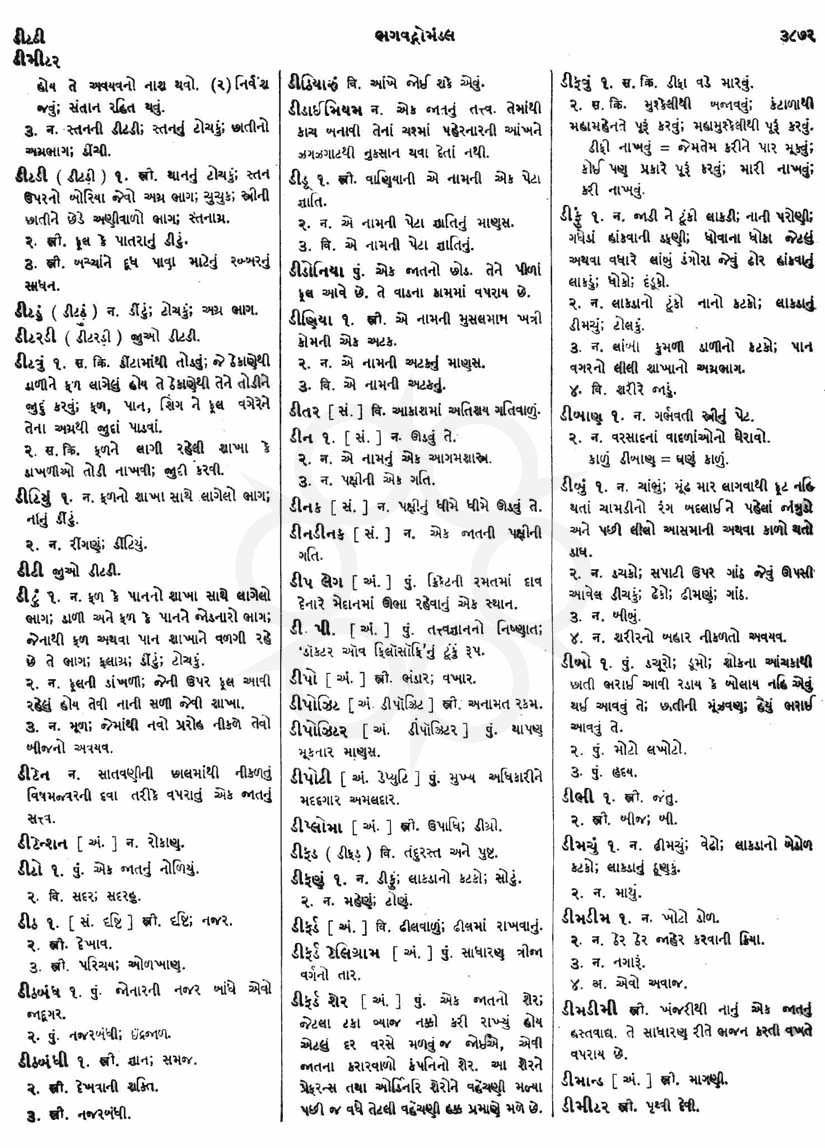 ડીટડી
ભગવદ્ગોમંડલ
૩૮૭૨
ડીમીટર
હોય તે અવયવનો નાશ થવો. (૨) નિર્વંશ
જવું; સંતાન રહિત થવું.
૩. ન. સ્તનની ડીટડી; સ્તનનું ટોચકું; છાતીનો
અગ્રભાગ; ડીંચી.
ડીટડી ( ડીટડી઼ ) ૧. સ્ત્રી. થાનનું ટોચકું; સ્તન
ઉપરનો બોરિયા જેવો અગ્ર ભાગ; ચુચુક; સ્ત્રીની
છાતીને છેડે અણીવાળો ભાગ; સ્તનાગ્ર.
૨. સ્ત્રી. ફૂલ કે પાતરાનું ડીટું.
૩. સ્ત્રી. બચ્ચાંને દૂધ પાવા માટેનું રબ્બરનું
સાધન.
ડીટડું ( ડીટડું઼ ) ન. ડીંટું; ટોચકું; અગ્ર ભાગ.
ડીટરડી ( ડીટરડી઼ ) જુઓ ડીટડી.
ડીટવું ૧. સ. ક્રિ. ડીંટામાંથી તોડવું; જે ઠેકાણેથી
ડાળીને ફળ લાગેલું હોય તે ઠેકાણેથી તેને તોડીને
જુદું કરવું; ફળ, પાન, શિંગ ને ફૂલ વગેરેને
તેના અગ્રથી જુદાં પાડવાં.
૨. સ. ક્રિ. ફળને લાગી રહેલી શાખા કે
ડાખળીઓ તોડી નાખવી; જુદી કરવી.
ડીટિયું ૧. ન. ફળનો શાખા સાથે લાગેલો ભાગ;
નાનું ડીંટું.
૨. ન. રીંગણું; ડીંટિયું.
ડીટી જુઓ ડીટડી.
ડીટું ૧. ન. ફળ કે પાનનો શાખા સાથે લાગેલો
ભાગ; ડાળી અને ફળ કે પાનને જોડનારો ભાગ;
જેનાથી ફળ અથવા પાન શાખાને વળગી રહે
છે તે ભાગ; ફલાગ્ર; ડીંટું; ટોચકું.
૨. ન. ફૂલની ડાંખળી; જેની ઉપર ફૂલ આવી
રહેલું હોય તેવી નાની સળી જેવી શાખા.
૩. ન. મૂળ; જેમાંથી નવો પ્રરોહ નીકળે તેવો
બીજનો અવયવ.
ડીટેન ન. સાતવણીની છાલમાંથી નીકળતું
વિષમજ્વરની દવા તરીકે વપરાતું એક જાતનું
સત્ત્વ.
ડીટેન્શન [ અં. ] ન. રોકાણ.
ડીટો ૧. પું. એક જાતનું નોળિયું.
૨. વિ. સદર; સદરહુ.
ડીઠ ૧. [ સં. દૃષ્ટિ ] સ્ત્રી. દૃષ્ટિ; નજર.
૨. સ્ત્રી. દેખાવ.
૩. સ્ત્રી. પરિચય; ઓળખાણ.
ડીઠબંધ ૧. પું. જોનારની નજર બાંધે એવો
જાદુગર.
૨. પું. નજરબંધી; ઇંદ્રજાળ.
ડીઠબંધી ૧. સ્ત્રી. જ્ઞાન; સમજ.
૨. સ્ત્રી. દેખવાની શક્તિ.
૩. સ્ત્રી. નજરબંધી.
ડીઠિયારું વિ. આંખે જોઈ શકે એવું.
ડીડાઈમિયમ ન. એક જાતનું તત્ત્વ. તેમાંથી
કાચ બનાવી તેનાં ચશ્માં પહેરનારની આંખને
ઝગઝગાટથી નુકસાન થવા દેતાં નથી.
ડીડૂ ૧. સ્ત્રી. વાણિયાની એ નામની એક પેટા
જ્ઞાતિ.
૨. ન. એ નામની પેટા જ્ઞાતિનું માણસ.
૩. વિ. એ નામની પેટા જ્ઞાતિનું.
ડીડોનિયા પું. એક જાતનો છોડ. તેને પીળાં
ફૂલ આવે છે. તે વાડના કામમાં વપરાય છે.
ડીણિયા ૧. સ્ત્રી. એ નામની મુસલમાન ખત્રી
કોમની એક અટક.
૨. ન. એ નામની અટકનું માણસ.
૩. વિ. એ નામની અટકનું.
ડીતર [ સં. ] વિ. આકાશમાં અતિશય ગતિવાળું.
ડીન ૧. [ સં. ] ન. ઊડવું તે.
૨. ન. એ નામનું એક આગમશાસ્ત્ર.
૩. ન. પક્ષીની એક ગતિ.
ડીનક [ સં. ] ન. પક્ષીનું ધીમે ધીમે ઊડવું તે.
ડીનડીનક [ સં. ] ન. એક જાતની પક્ષીની
ગતિ.
ડીપ લેગ [ અં. ] પું. ક્રિકેટની રમતમાં દાવ
દેનારે મેદાનમાં ઊભા રહેવાનું એક સ્થાન.
ડી. પી. [ અં. ] પું. તત્ત્વજ્ઞાનનો નિષ્ણાત;
‘ડૉક્ટર ઑવ ફિલૉસૉફિ’નું ટૂંકું રૂપ.
ડીપો [ અં. ] સ્ત્રી. ભંડાર; વખાર.
ડીપોઝિટ [ અં. ડીપૉઝિટ ] સ્ત્રી. અનામત રકમ.
ડીપોઝિટર [ અં. ડીપૉઝિટર ] પું. થાપણ
મૂકનાર માણસ.
ડીપોટી [ અં. ડેપ્યુટિ ] પું. મુખ્ય અધિકારીને
મદદગાર અમલદાર.
ડીપ્લોમા [ અં. ] સ્ત્રી. ઉપાધિ; ડીગ્રી.
ડીફડ ( ડીફડ઼ ) વિ. તંદુરસ્ત અને પુષ્ટ.
ડીફણું ૧. ન. ડીફું; લાકડાનો કટકો; સોટું.
૨. ન. મહેણું; ટોણું.
ડીફર્ડ [ અં. ] વિ. ઢીલવાળું; ઢીલમાં રાખવાનું.
ડીફર્ડ ટેલિગ્રામ [ અં. ] પું. સાધારણ ત્રીજા
વર્ગનો તાર.
ડીફર્ડ શેર [ અં. ] પું. એક જાતનો શેર;
જેટલા ટકા વ્યાજ નક્કી કરી રાખ્યું હોય
એટલું દર વરસે મળવું જ જોઈએ, એવી
જાતના કરારવાળો કંપનિનો શેર. આ શેરને
પ્રેફરન્સ તથા ઓર્ડિનરિ શેરોને વહેંચણી મળ્યા
પછી જ વધે તેટલી વહેંચણી હક્ક પ્રમાણે મળે છે.
ડીફવું ૧. સ. ક્રિ. ડીફા વડે મારવું.
૨. સ. ક્રિ. મુશ્કેલીથી બજાવવું; કંટાળાથી
મહામહેનતે પૂરું કરવું; મહામુશ્કેલીથી પૂરું કરવું.
ડીફી નાખવું = જેમતેમ કરીને પાર મૂકવું;
કોઈ પણ પ્રકારે પૂરું કરવું; મારી નાખવું;
કરી નાખવું.
ડીફું ૧. ન. જાડી ને ટૂંકી લાકડી; નાની પરોણી;
ગધેડાં હાંકવાની ડફણી; ધોવાના ધોકા જેટલું
અથવા વધારે લાંબું ડંગોરા જેવું ઢોર હાંકવાનું
લાકડું; ધોકો; દંડૂકો.
૨. ન. લાકડાનો ટૂંકો નાનો કટકો; લાકડાનું
ડીમચું; ટોલકું.
૩. ન. લાંબી કુમળી ડાળીનો કટકો; પાન
વગરનો લીલી શાખાનો અગ્રભાગ.
૪. વિ. શરીરે જાડું.
ડીબાણ ૧. ન. ગર્ભવતી સ્ત્રીનું પેટ.
૨. ન. વરસાદનાં વાદળાંઓનો ઘેરાવો.
કાળું ડીબાણ = ઘણું કાળું.
ડીબું ૧. ન. ચાંભું; મૂંઢ માર લાગવાથી ફૂટ નહિ
થતાં ચામડીનો રંગ બદલાઈ ને પહેલાં જાંબુડો
અને પછી લીલો આસમાની અથવા કાળો થતો
ડાઘ.
૨. ન. ડચકો; સપાટી ઉપર ગાંઠ જેવું ઊપસી
આવેલ ડીચકું; ઢેકો; ઢીમણું; ગાંઠ.
૩. ન. બીબું.
૪. ન. શરીરનો બહાર નીકળતો અવયવ.
ડીબો ૧. પું. ડચૂરો; ડૂમો; શોકના આંચકાથી
છાતી ભરાઈ આવી રડાય કે બોલાય નહિ એવું
થઈ આવવું તે; છાતીની મૂંઝવણ; હૈયું ભરાઈ
આવવું તે.
૨. પું. મોટો લખોટો.
૩. પું. હૃદય.
ડીભી ૧. સ્ત્રી. જંતુ.
૨. સ્ત્રી. બીજ; બી.
ડીમચું ૧. ન. ઢીમચું; વેઢો; લાકડાનો બેડોળ
કટકો; લાકડાનું ઠૂણકું.
૨. ન. માથું.
ડીમડીમ ૧. ન. ખોટો ડોળ.
૨. ન. ઠેર ઠેર જાહેર કરવાની ક્રિયા.
૩. ન. નગારૂં.
૪. અ. એવો અવાજ.
ડીમડીમી સ્ત્રી. ખંજરીથી નાનું એક જાતનું
હસ્તવાદ્ય. તે સાધારણ રીતે ભજન કરતી વખતે
વપરાય છે.
ડીમાન્ડ [ અં. ] સ્ત્રી. માગણી.
ડીમીટર સ્ત્રી. પૃથ્વી દેવી.